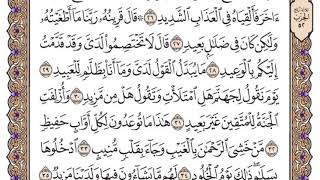 ءَاخَرَ فَأَلْقِيَاهُ فِي ٱلْعَذَابِ ٱلشَّدِيدِ ٢٦ ۞ قَالَ قَرِينُهُۥ رَبَّنَا مَآ أَطْغَيْتُهُۥ
وَلَٰكِن كَانَ فِي ضَلَٰلٍۭ بَعِيدٍ ٢٧ قَالَ لَا تَخْتَصِمُوا۟ لَدَىَّ وَقَدْ قَدَّمْتُ
إِلَيْكُم بِٱلْوَعِيدِ ٢٨ مَا يُبَدَّلُ ٱلْقَوْلُ لَدَىَّ وَمَآ أَنَا۠ بِظَلَّٰمٍ لِّلْعَبِيدِ ٢٩
يَوْمَ نَقُولُ لِجَهَنَّمَ هَلِ ٱمْتَلَأْتِ وَتَقُولُ هَلْ مِن مَّزِيدٍ ٣٠ وَأُزْلِفَتِ
ٱلْجَنَّةُ لِلْمُتَّقِينَ غَيْرَ بَعِيدٍ ٣١ هَٰذَا مَا تُوعَدُونَ لِكُلِّ أَوَّابٍ حَفِيظٍ ٣٢
مَّنْ خَشِيَ ٱلرَّحْمَٰنَ بِٱلْغَيْبِ وَجَآءَ بِقَلْبٍ مُّنِيبٍ ٣٣ ٱدْخُلُوهَا
بِسَلَٰمٍ ذَٰلِكَ يَوْمُ ٱلْخُلُودِ ٣٤ لَهُم مَّا يَشَآءُونَ فِيهَا وَلَدَيْنَا مَزِيدٌ ٣٥
الحزب
٥٢